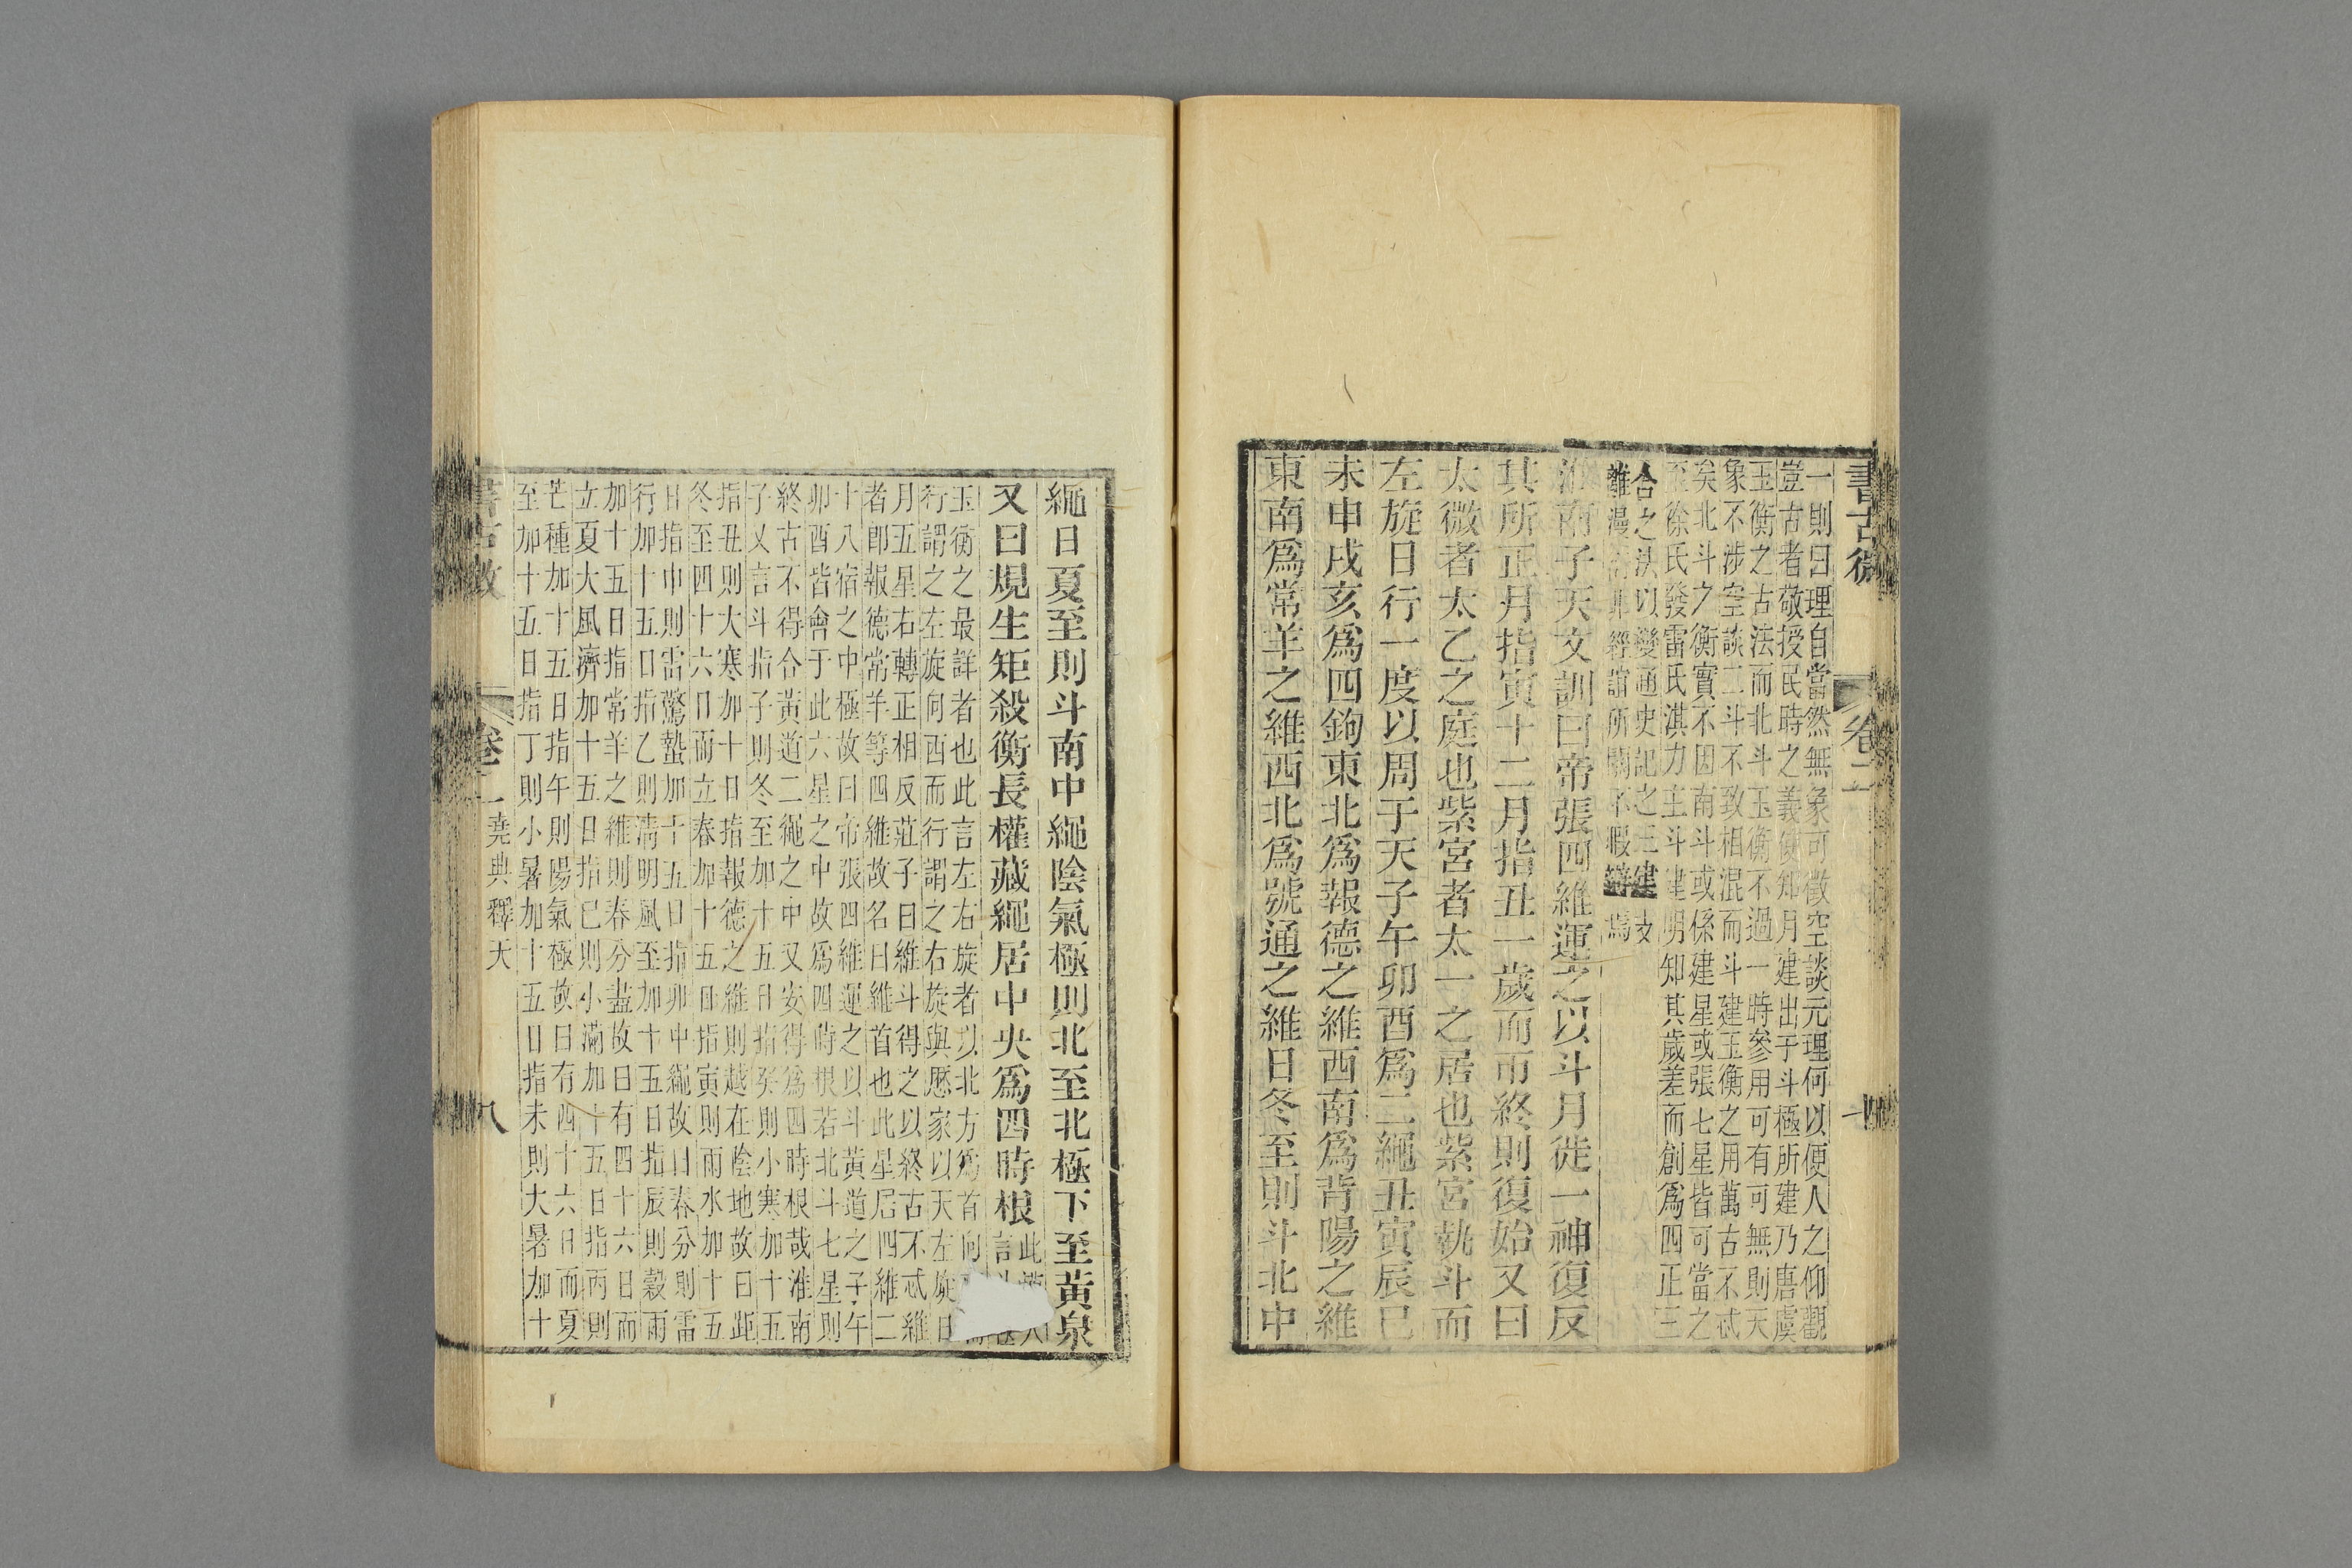 書古微
卷二
一則曰理自當然無象可徵空談元理何以便人之仰觀
豈古者敬授民時之義使知月建出于斗極所建乃唐虞
玉衡之古法而北斗玉衡不過一時參用可有可無則天
象不涉空談二斗不致相混而斗建玉衡之用萬古不忒
矣北斗之衡實不因南斗或係建星或張七星皆可當之
至徐氏發雷氏淇力主斗建明知其歲差而創爲四正三
合之法以變通史記之三建
雖漫 經誼所關不暇辯焉
淮南子天文訓曰帝張四維運之以斗月徙一神復反
其所正月指寅十二月指丑一歲而帀終則復始又曰
太微者太乙之庭也紫宮者太一之居也紫宮執斗而
左旋日行一度以周于天子午卯酉爲二繩丑寅辰巳
未申戌亥爲四鉤東北爲報德之維西南爲背陽之維
東南爲常羊之維西北爲號通之維日冬至則斗北中
繩日夏至則斗南中繩陰氣極則北至北極下至黃泉
又曰規生矩殺衡長權藏繩居中央爲四時根
此
言
玉衡之最詳者也此言左右旋者以北方爲首向
行謂之左旋向西而行謂之右旋與厯家以天左旋日
月五星右轉正相反莊子曰維斗得之以終古不忒維
者卽報德常羊等四維故名曰維首也此星居四維二
十八宿之中極故曰帝張四維運之以斗黃道之子午
卯酉皆會于此六星之中故爲四時根若北斗七星則
終古不得合黃道二繩之中又安得爲四時根哉淮南
子又言斗指子則冬至加十五日指癸則小寒加十五
指丑則大寒加十日指報德之維則越在陰地故曰距
冬至四十六日而立春加十五日指寅則雨水加十五
日指中則雷驚蟄加十五日指卯中繩故曰春分則雷
行加十五日指乙則清明風至加十五日指辰則穀雨
加十五日指常羊之維則春分盡故曰有四十六日而
立夏大風濟加十五日指巳則小滿加十五日指丙則
芒種加十五日指午則陽氣極故曰有四十六日而夏
至加十五日指丁則小暑加十五日指未則大暑加十
書古微
卷二
堯典釋天
八